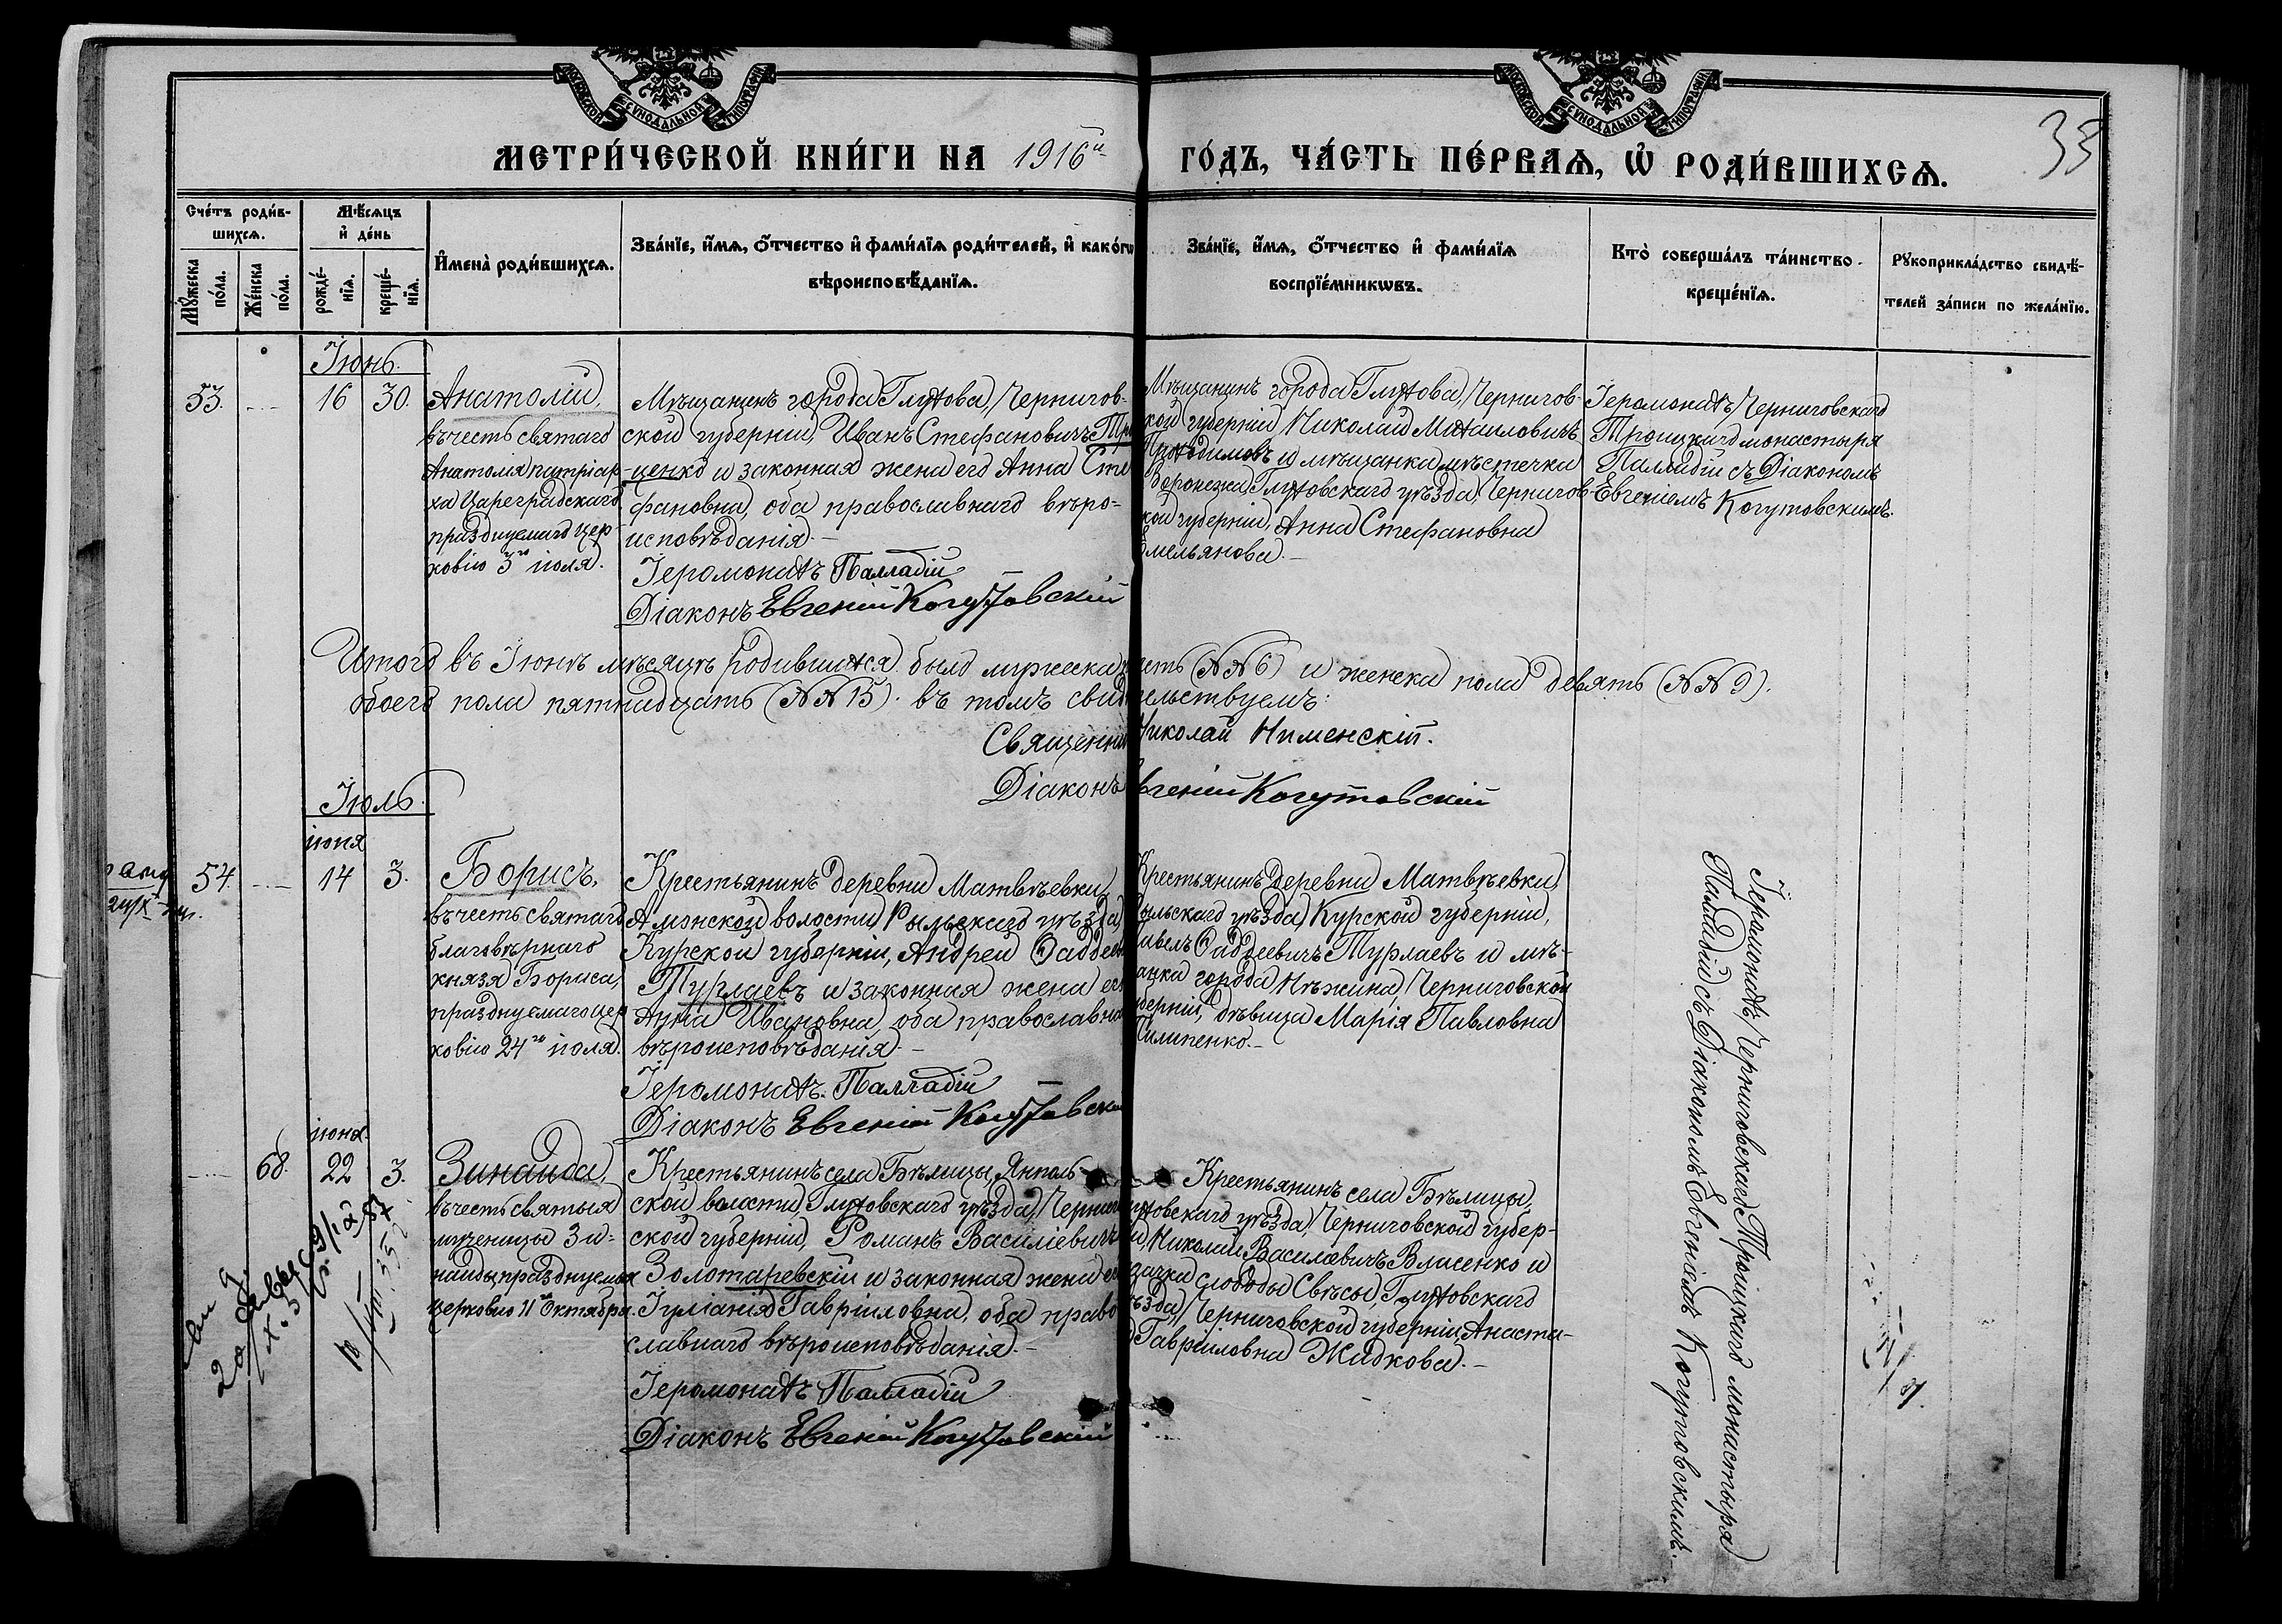 МОСКОВСКОЙ СѴНОДАЛЬНОЙ ТИПОГРАФІИ
МОСКОВСКОЙ СѴНОДАЛЬНОЙ ТИПОГРАФІИ
МЕТРИ́ЧЕСКОЙ КНИ́ГИ НА 1916й ГО́ДЪ, ЧА́СТЬ ПЕ́РВАѦ, Ѡ РОДИ́ВШИХСѦ.
35
Сче́тъ роди́в-
шихсѧ.
Мѣ́сѧцъ
и де́нь
Мꙋ́жеска
по́ла.
Же́нска
по́ла.
рожде́-
нїѧ.
креще́-
нїѧ.
Имена̀ роди́вшихсѧ.
Зва́нїе, и́мѧ, ѻ́тчество и фами́лїѧ роди́телей, и како́гѡ
вѣроисповѣ́данїѧ.
Зва́нїе, и́мѧ, ѻ́тчество и фами́лїѧ
воспрїе́мникѡвъ.
Кто̀ соверша́лъ та́инство
креще́нїѧ.
Рꙋкоприкла́дство свидѣ́-
телей за́писи по жела́нїю.
Іюнь.
53. 16 30.
Анатолій,
въ честь святаго
Анатолія патріар
ха Цареградскаго
празднуемаго цер
ковію 3го іюля.
Мѣщанинъ города Глухова, Чернигов-
ской губерніи, Иванъ Стефановичъ
ценко и законная жена его Анна Сте
фановна, оба православнаго вѣро-
исповѣданія.
Іеромонахъ Палладій
Діаконъ Евгеній Когутовскій
Мѣщанинъ города Глухова, Чернигов-
кой губерніи Николай Михаиловичъ
Проходимовъ и мѣщанка мѣстечка
Воронежа, Глуховскаго уѣзда, Чернигов-
кой губерніи, Анна Стефановна
мельянова.
Іеромонахъ Черниговскаго
Троицкаго монастыря
Палладій съ Діакономъ
Евгеніемъ Когутовскимъ.
Итого въ Іюнѣ мѣсяцѣ родившихся было мужеска есть (№№ 6) и женска пола девять (№№ 9).
обоего пола пятнадцать (№№ 15). въ томъ свидѣтельствуемъ:
Священник Николай Нименскій.
Діаконъ Евгеній Когутовскій
Іюль.
іюня
54. 14 3.
Борисъ,
въ честь святаго
благовѣрнаго
князя Бориса,
празднуемаго цер
ковію 24го іюля.
Крестьянинъ деревни Матвѣевки,
Амонской волости, Рыльскаго уѣзда,
Курской губерніи, Андрей Фаддее
Турлаевъ и законная жена его
Анна Ивановна, оба православна
вѣроисповѣданія.
Іеромонахъ Палладій
Діаконъ Евгеній Когутовскі
Крестьянинъ деревни Матвѣевки,
ыльскаго уѣзда, Курской губерніи,
авелъ Фаддеевичъ Турлаевъ и мѣ-
анка города Нѣжина, Черниговской
берніи, дѣвица Марія Павловна
Пилипенко.
Іеромонахъ Черниговскаго Троицкаго монастыря
Палладій съ Діакономъ Евгеніемъ Когутовскимъ.
іюня
68. 22 3.
Зинаида,
въ честь святыя
мученицы Зи-
наиды празднуемыя
церковію 11го Октября.
Крестьянинъ села Бѣлицы, Янполь-
ской волости, Глуховскаго уѣзда, Чернигов
ской губерніи, Романъ Василіевичъ
Золотаревскій и законная жена его
Іуліанія Гавріиловна, оба право
славнаго вѣроисповѣданія.
Іеромонахъ Палладій
Діаконъ Евгеній Когутовскій
Крестьянинъ села Бѣлицы,
уховскаго уѣзда, Черниговской губер-
и, Николай Василіевичъ Власенко и
зачка слободы Свѣсы, Глуховскаго
ѣзда, Черниговской губерніи, Анаста-
Гавріиловна Жидкова.